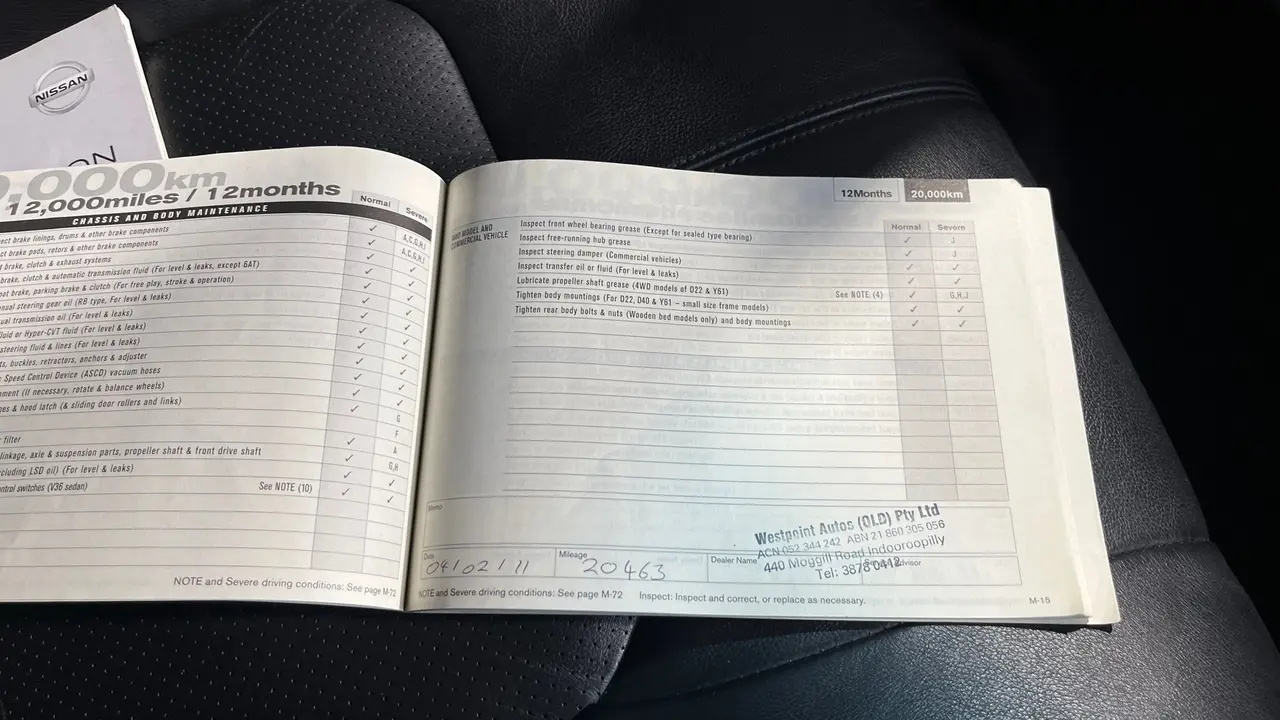 NISSAN
ON
,000km
12,000miles / 12months
CHASSIS AND BODY MAINTENANCE
Normal
Severe
ect brake linings, drums & other brake components ✓ A,C,G,H,I
ct brake pads, rotors & other brake components ✓ A,C,G,H,I
d brake, clutch & exhaust systems ✓ ✓
brake, clutch & automatic transmission fluid (For level & leaks, except 6AT) ✓ ✓
ot brake, parking brake & clutch (For free play, stroke & operation) ✓ ✓
nual steering gear oil (RB type, For level & leaks) ✓ ✓
ual transmission oil (For level & leaks) ✓ ✓
fluid or Hyper-CVT fluid (For level & leaks) ✓ ✓
steering fluid & lines (For level & leaks) ✓ ✓
ts, buckles, retractors, anchors & adjuster ✓ ✓
Speed Control Device (ASCD) vacuum hoses ✓ ✓
nment (If necessary, rotate & balance wheels) ✓ ✓
es & hood latch (& sliding door rollers and links) ✓ ✓
G
F
filter ✓ A
linkage, axle & suspension parts, propeller shaft & front drive shaft ✓ G,H
cluding LSD oil) (For level & leaks) ✓ ✓
ntrol switches (V36 sedan) See NOTE (10) ✓ ✓
NOTE and Severe driving conditions: See page M-72
12Months 20,000km
Normal Severe
MODEL AND
COMMERCIAL VEHICLE
Inspect front wheel bearing grease (Except for sealed type bearing) ✓ J
Inspect free-running hub grease ✓ J
Inspect steering damper (Commercial vehicles) ✓ ✓
Inspect transfer oil or fluid (For level & leaks) ✓ ✓
Lubricate propeller shaft grease (4WD models of D22 & Y61) See NOTE (4) ✓ G,H,J
Tighten body mountings (For D22, D40 & Y61 – small size frame models) ✓ ✓
Tighten rear body bolts & nuts (Wooden bed models only) and body mountings ✓ ✓
Memo
Westpoint Autos (QLD) Pty Ltd
ACN 052 344 242 ABN 21 860 305 056
440 Moggill Road Indooroopilly
Tel: 3878 0442
Date 04/02/11 Mileage 20463 Dealer Name advisor
NOTE and Severe driving conditions: See page M-72 Inspect: Inspect and correct, or replace as necessary.
M-15